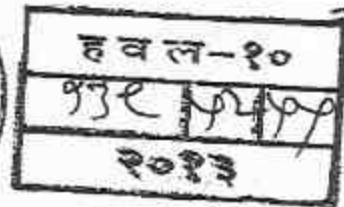 हवल-१०
१३९
२०१३